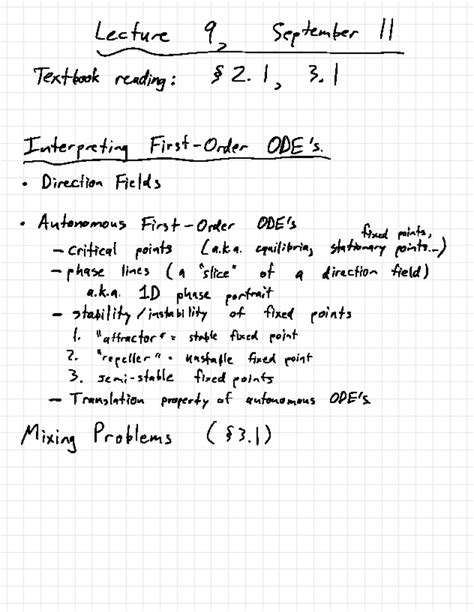 Lecture 9, September 11
Textbook reading: § 2.1, 3.1
Interpreting First-Order ODE's.
• Direction Fields
• Autonomous First-Order ODE's
– critical points (a.k.a. equilibria, fixed points, stationary points...)
– phase lines (a "slice" of a direction field)
a.k.a. 1D phase portrait
– stability/instability of fixed points
1. "attractor" = stable fixed point
2. "repeller" = unstable fixed point
3. semi-stable fixed points
– Translation property of autonomous ODE's.
Mixing Problems (§3.1)